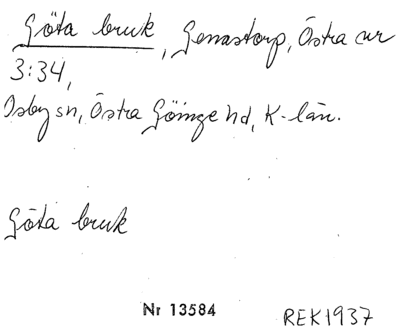 Göta bruk, Genastorp, Östra
3:34,
Osby sn, Östra Göinge hd, K-län.
Göta bruk
Nr 13584
REK1937